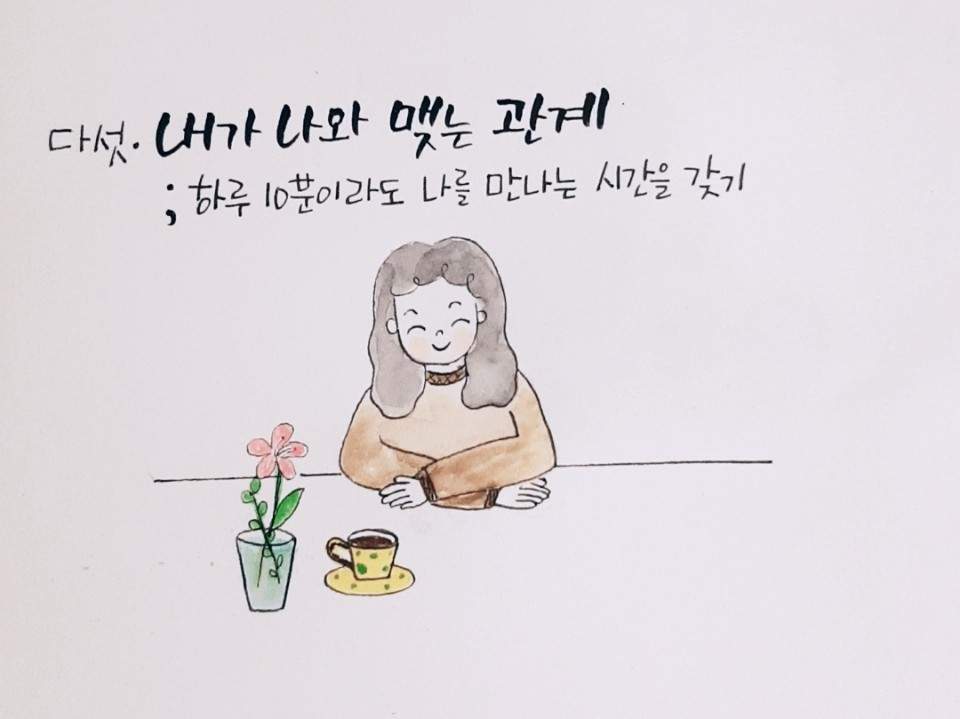 다섯. 내가 나와 맺는 관계
; 하루 10분이라도 나를 만나는 시간을 갖기